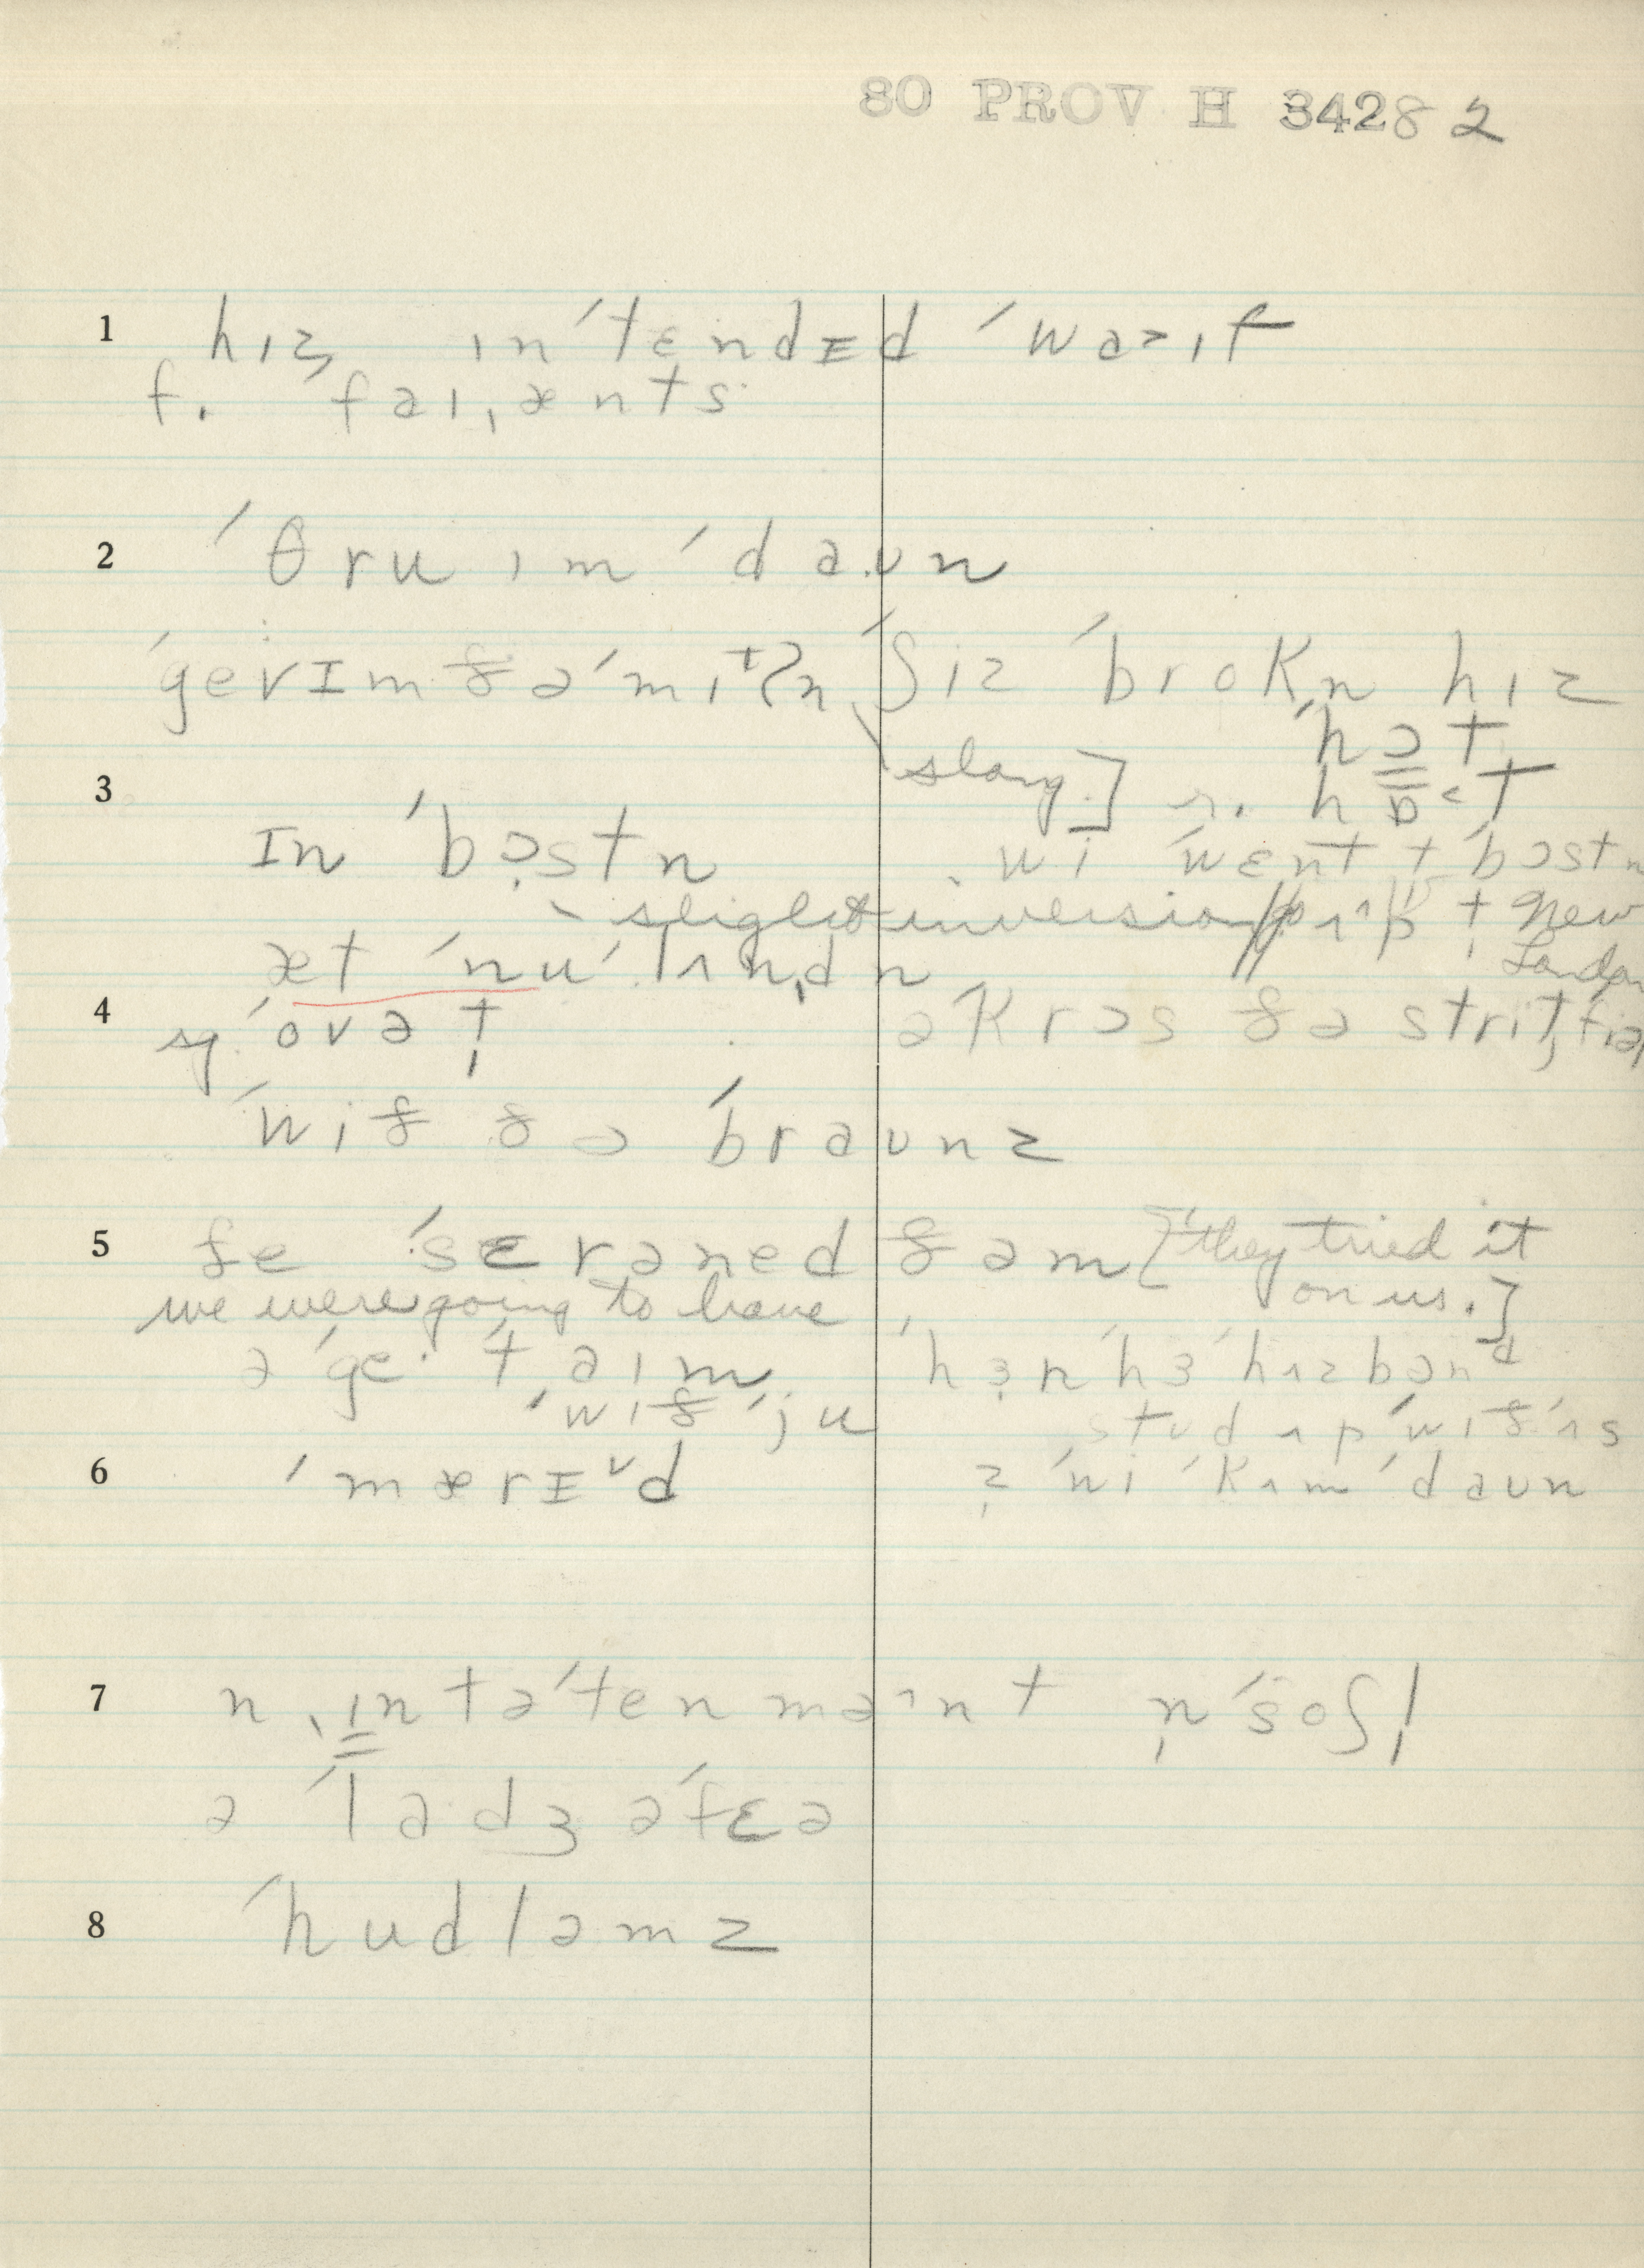 80 PROV H 3428 2
1 hɪz ɪn ˈtɛndɪd ˈwaɪf
f. ˈfaɪˌænts
2 ˈθru ɪm ˈdaʊn
ˈgev ɪm ðə ˈmɪtn̩ ˈʃiz ˈbrokn̩ hɪz
ˈhɔt
[slang] r. hɒ˂t
3 ɪn ˈbɔ̞stn wi ˈwɛnt t ˈbɔstn
- slight inversion // ʌp t New London
æt ˈnu ˈlʌnˌdn
4 sy ˈovə t̩ əˈkrɔs ðə strit,
ˈwið ðə ˈbraʊnz
5 ðe ˈsɛrəned ðəm [ˈthey tried it
on us.]
we were going to have
ə ˈge· ˈtaɪm ˈhɜ n ˈhɜ ˈhʌzbənd
ˈwið ˈju stʊd ʌp ˈwið ʌs
6 ˈmærɪ˅d ˈwi ˈkʌm ˈdaʊn
7 n ˌɪntəˈtenmənt n̩ ˈsoʃl̩
ə ˈladʒ əˈfɛə
8 ˈhudləmz